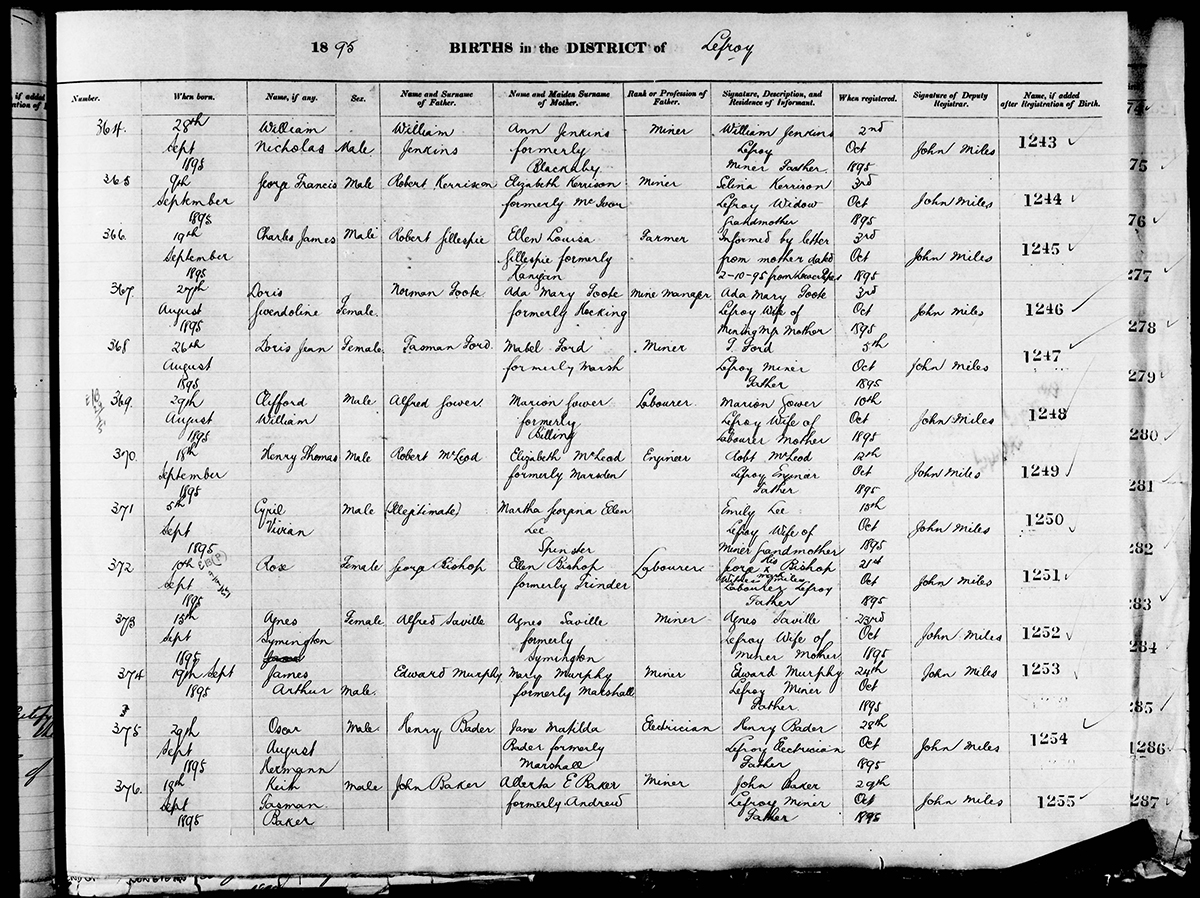 1895 BIRTHS in the DISTRICT of Lefroy
Number. When born. Name, if any. Sex. Name and Surname of Father. Name and Maiden Surname of Mother. Rank or Profession of Father. Signature, Description, and Residence of Informant. When registered. Signature of Deputy Registrar. Name, if added after Registration of Birth.
364. 28th William William Ann Jenkins Miner William Jenkins 2nd
Sept Nicholas Male Jenkins formerly Lefroy Oct John Miles 1243
1895 Blackaby Miner Father 1895
365 9th George Francis Male Robert Kerrison Elizabeth Kerrison Miner Selina Kerrison 3rd
September formerly McIvor Lefroy Widow Oct John Miles 1244
1895 Grandmother 1895
366. 19th Charles James Male Robert Gillespie Ellen Louisa Farmer Informed by letter 3rd
September Gillespie formerly from mother dated Oct John Miles 1245
1895 2-10-95 from 1895
367 27th Doris Norman Toote Ada Mary Toote Mine Manager Ada Mary Toote 3rd
August Gwendoline Female. formerly Hocking Lefroy Wife of Oct John Miles 1246
1895 Mining Mgr Mother 1895
368 26th Doris Jean Female Tasman Ford. Mabel Ford Miner T Ford 5th
August formerly Marsh Lefroy Miner Oct John Miles 1247
1895 Father 1895
369. 29th Clifford Male Alfred Gower Marion Gower Labourer Marion Gower 10th
August William formerly Lefroy Wife of Oct John Miles 1248
1895 Billing Labourer Mother 1895
370. 18th Henry Thomas Male Robert McLeod Elizabeth McLeod Engineer Robt McLeod 12th
September formerly Marsden Lefroy Engineer Oct John Miles 1249
1895 Father 1895
371 5th Cyril Male (Illegitimate) Martha Ellen Emily Lee 15th
Sept Vivian Lee Lefroy Wife of Oct John Miles 1250
1895 Spinster Miner Grandmother 1895
372 10th Rose Female George Bishop Ellen Bishop Labourer George His x Bishop 21st
Sept formerly Trinder Witness Miles Oct John Miles 1251
1895 Labourer Lefroy
Father 1895
373 13th Agnes Female Alfred Saville Agnes Saville Miner Agnes Saville 23rd
Sept Symington formerly Lefroy Wife of Oct John Miles 1252
1895 Symington Miner Mother 1895
374 19th Sept James Edward Murphy Mary Murphy Miner Edward Murphy 24th John Miles 1253
1895 Arthur Male. formerly Marshall Lefroy Miner Oct
Father 1895
375 29th Oscar Male Henry Bader Jane Matilda Electrician Henry Bader 28th
Sept August Bader formerly Lefroy Electrician Oct John Miles 1254
1895 Hermann Marshall Father 1895
376. 18th Keith Male John Baker Alberta E Baker Miner John Baker 29th
Sept Tasman formerly Andrew Lefroy Miner Oct John Miles 1255
1895 Baker Father 1895